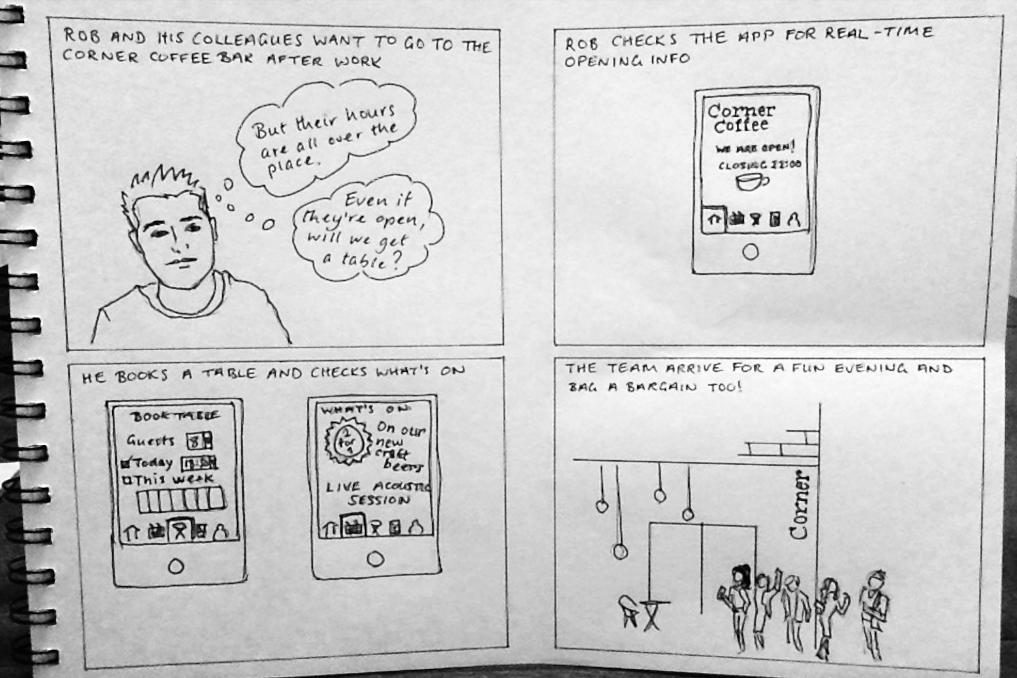 ROB AND HIS COLLEAGUES WANT TO GO TO THE
CORNER COFFEE BAR AFTER WORK
But their hours
are all over the
place.
Even if
they're open,
will we get
a table?
ROB CHECKS THE APP FOR REAL-TIME
OPENING INFO
Corner
Coffee
WE ARE OPEN!
CLOSING 22:00
HE BOOKS A TABLE AND CHECKS WHAT'S ON
BOOK TABLE
Guests 8
Today
This week
WHAT'S ON
2
for
1
On our
new
craft
beers
LIVE ACOUSTIC
SESSION
THE TEAM ARRIVE FOR A FUN EVENING AND
BAG A BARGAIN TOO!
Corner